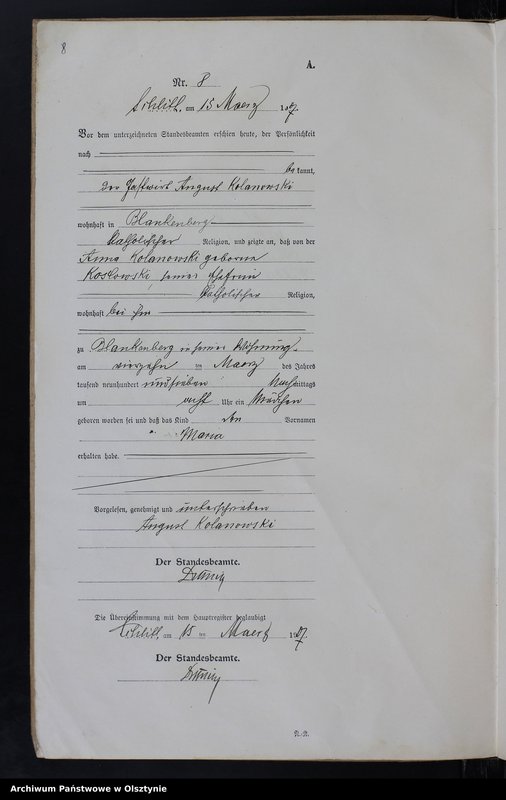 8
A.
Nr. 8
am 15 Maerz 1907.
Vor dem unterzeichneten Standesbeamten erschien heute, der Persönlichkeit
nach
be kannt,
der Gastwirt August Kolanowski
wohnhaft in Blankenberg
katholischer Religion, und zeigte an, daß von der
Anna Kolanowski geborene
Koslowski, seiner Ehefrau
katholischer Religion,
wohnhaft bei ihm
zu Blankenberg in seiner Wohnung
am vierzehn ten Maerz des Jahres
tausend neunhundert und sieben Nachmittags
um acht Uhr ein Mädchen
geboren worden sei und daß das Kind den Vornamen
Maria
erhalten habe.
Vorgelesen, genehmigt und unterschrieben
August Kolanowski
Der Standesbeamte.
Die Übereinstimmung mit dem Hauptregister beglaubigt
am 15 ten Maerz 1907.
Der Standesbeamte.
A.-R.
Archiwum Państwowe w Olsztynie